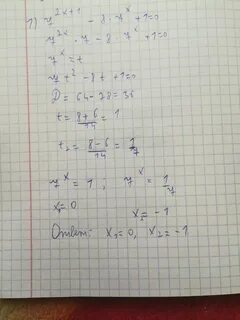 1) 7^{2x+1} - 8·7^x + 1 = 0
7^{2x} · 7 - 8·7^x + 1 = 0
7^x = t
7t² - 8t + 1 = 0
D = 64 - 28 = 36
t = \frac{8+6}{14} = 1
t₂ = \frac{8-6}{14} = \frac{1}{7}
7^x = 1 ; 7^x = \frac{1}{7}
x₁ = 0 x₂ = -1
Ответ: x₁ = 0, x₂ = -1